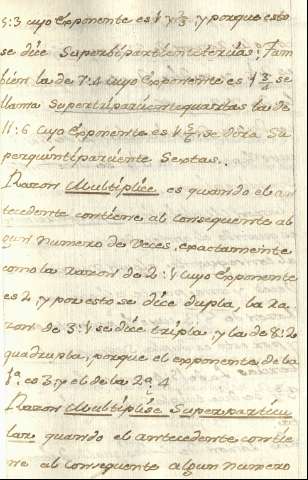 5:3 cuyo Exponente es 1 y 2/3 y porque esto
se dice Superbipartientetercias: Tam
bien la de 7:4 cuyo Exponente es 1 3/4 se
llama Supertripartientequartas la de
11:6 cuyo Exponente es 1 5/6 se dira Su
perquintipartiente Sextas..
Razon Multiplice es quando el an
tecedente contiene al consequente al
gun numero de Veces, exactamente
como la razon de 2:1 cuyo Exponente
es 2, y por esto se dice dupla, la Ra
zon de 3:1 se dice tripla, y la de 8:2
quadrupla, porque el exponente de la
1ª es 3, y el de la 2ª 4
Razon Multiplise Superparticu
lar quando el antecedente contie
ne al consequente algun numero